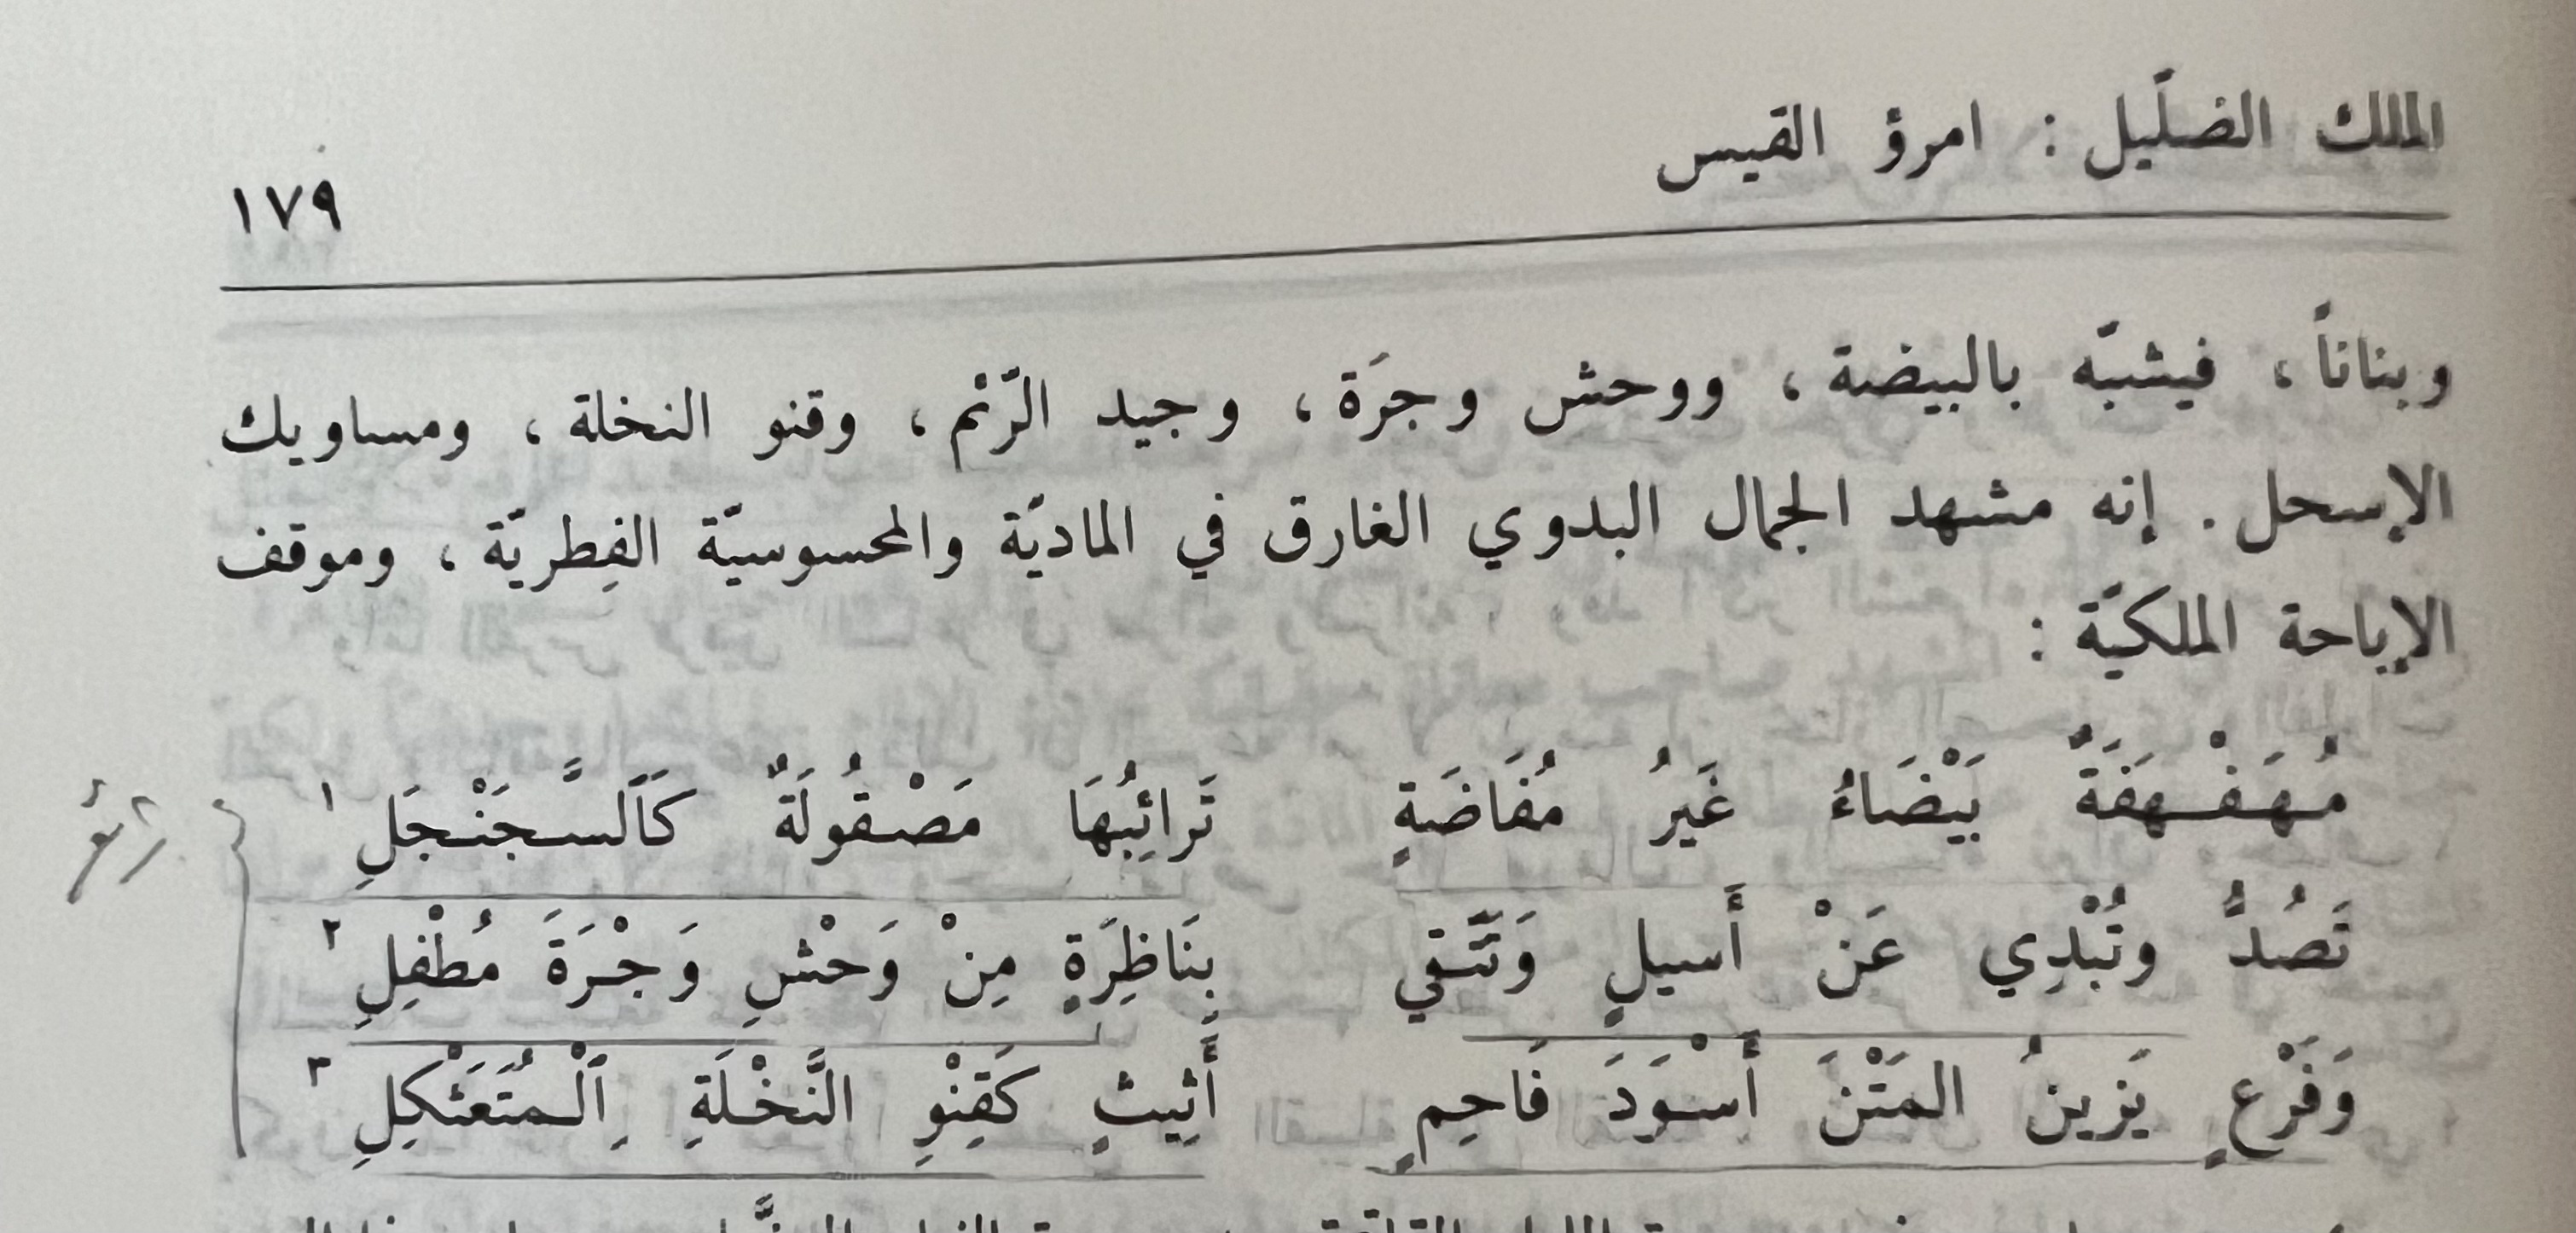 الملك الضلّيل : امرؤ القيس
١٧٩
وبناناً ، فيشبّه بالبيضة ، ووحش وجرَة ، وجيد الرّئم ، وقنو النخلة ، ومساويك
الإسحل . إنه مشهد الجمال البدوي الغارق في الماديّة والمحسوسيّة الفِطريّة ، وموقف
الإباحة الملكيّة :
مُهَفْهَفَةٌ بَيْضَاءُ غَيرُ مُفَاضَةٍ تَرائِبُهَا مَصْقُولَةٌ كَالسَّجَنْجَلِ ١
تَصُدُّ وتُبْدِي عَنْ أَسيلٍ وَتَتَّقي بِنَاظِرَةٍ مِنْ وَحْشِ وَجْرَةَ مُطْفِلِ ٢
وَفَرْعٍ يَزينُ المَتْنَ أَسْوَدَ فَاحِمٍ أَثِيثٍ كَقِنْوِ النَّخْلَةِ ٱلْمُتَعَثْكِلِ ٣
رائع